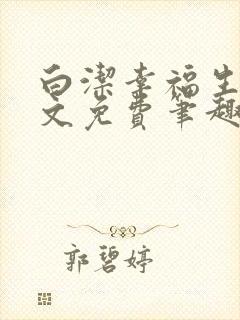 白潔幸福生
文免費筆趣
郭碧婷